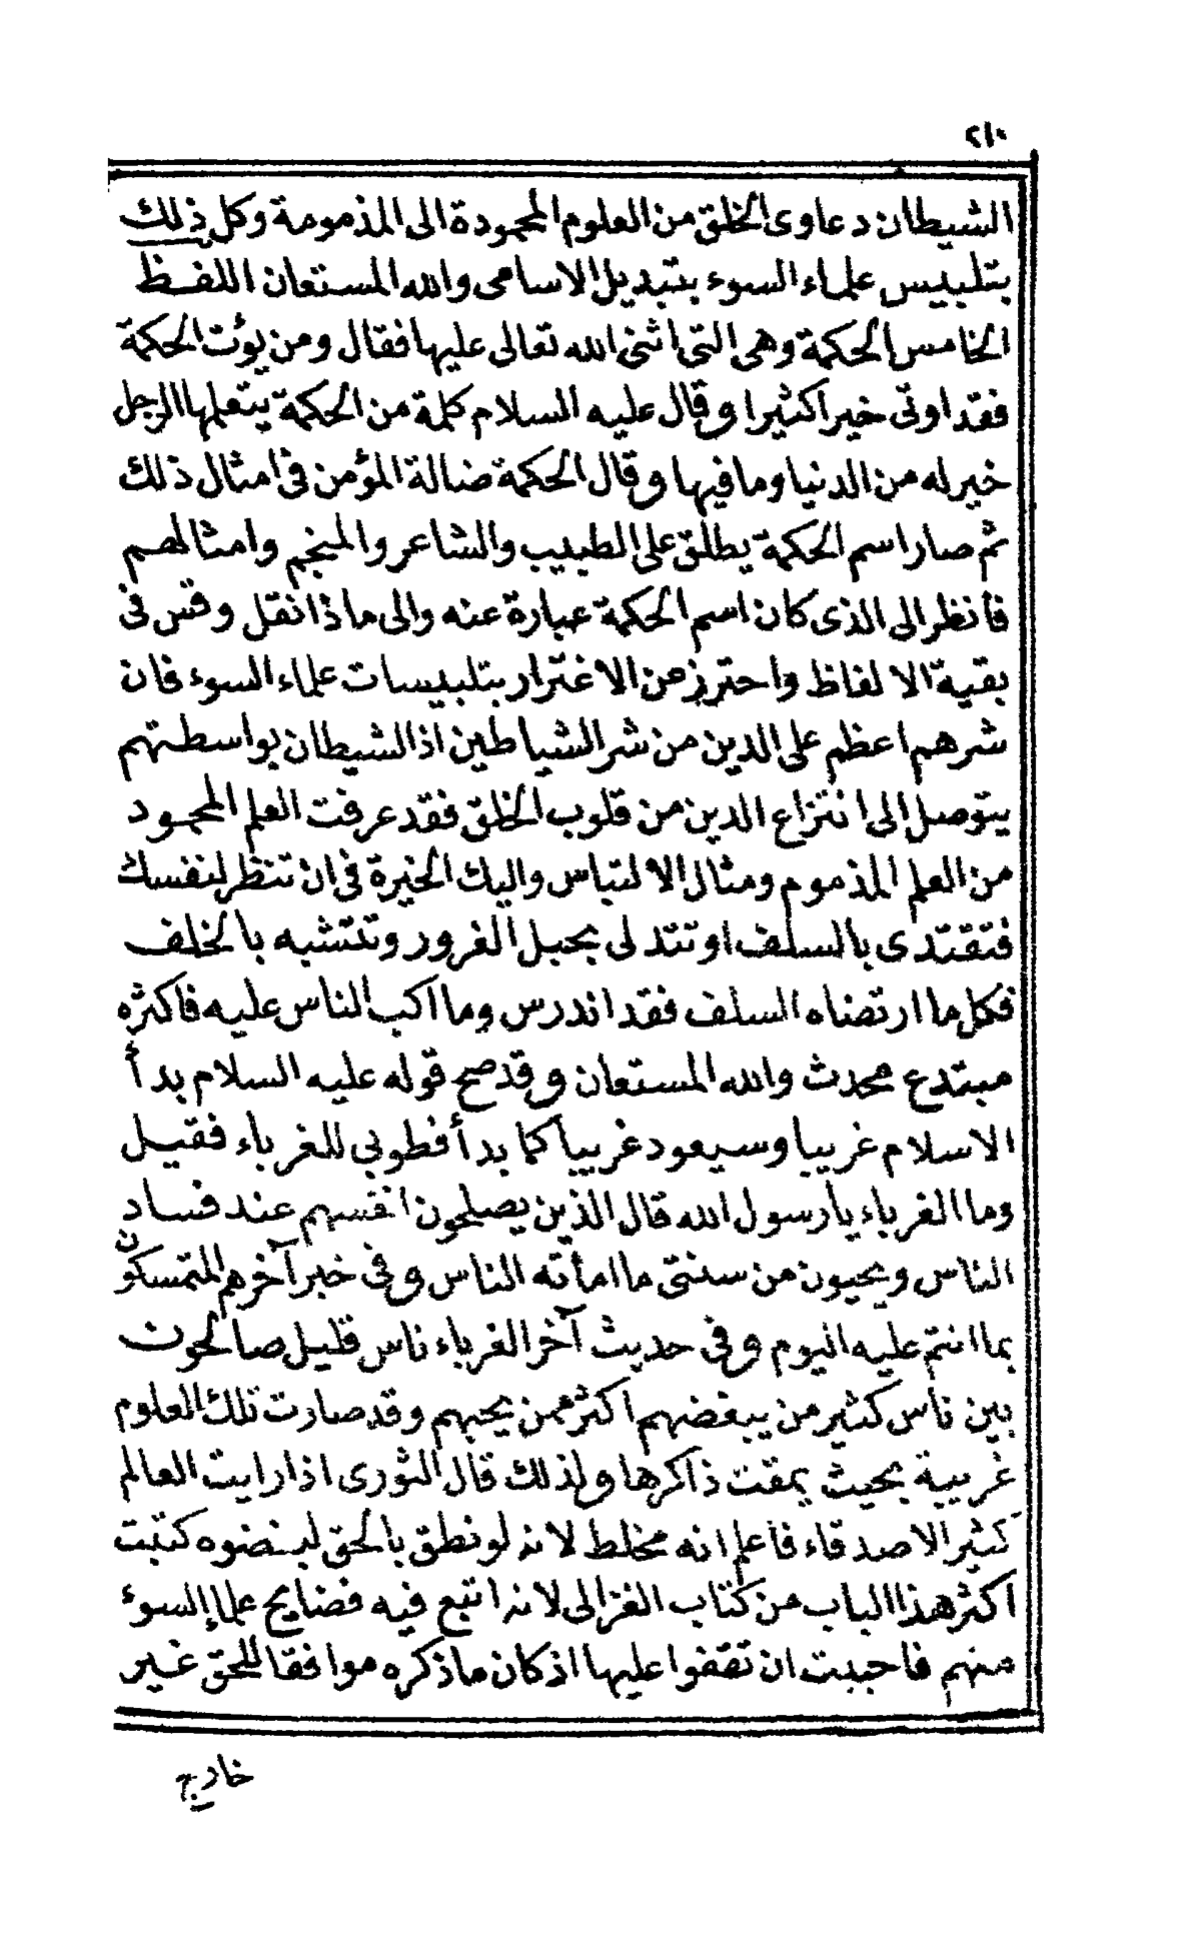 ٢١٠
الشيطان دعاوى الخلق من العلوم المحمودة الى المذمومة وكل ذلك
بتلبيس علماء السوء بتبديل الاسامى والله المستعان اللفظ
الخامس الحكمة وهى التى اثنى الله تعالى عليها فقال ومن يؤت الحكمة
فقد اوتى خيرا كثيرا وقال عليه السلام كلمة من الحكمة يتعلمها الرجل
خير له من الدنيا وما فيها وقال الحكمة ضالة المؤمن فى امثال ذلك
ثم صار اسم الحكمة يطلق على الطبيب والشاعر والمنجم وامثالهم
فانظر الى الذى كان اسم الحكمة عبارة عنه والى ماذا نقل وقس فى
بقية الالفاظ واحترز من الاغترار بتلبيسات علماء السوء فان
شرهم اعظم على الدين من شر الشياطين اذ الشيطان بواسطتهم
يتوصل الى انتزاع الدين من قلوب الخلق فقد عرفت العلم المحمود
من العلم المذموم ومثال الالتباس واليك الخيرة فى ان تنظر لنفسك
فتقتدى بالسلف او تتدلى بحبل الغرور وتتشبه بالخلف
فكل ما ارتضاه السلف فقد اندرس وما اكب الناس عليه فاكثره
مبتدع محدث والله المستعان وقد صح قوله عليه السلام بدأ
الاسلام غريبا وسيعود غريبا كما بدأ فطوبى للغرباء فقيل
وما الغرباء يا رسول الله قال الذين يصلحون انفسهم عند فساد
الناس ويحيون من سنتى ما اماته الناس وفى خبر آخر هم المتمسكون
بما انتم عليه اليوم وفى حديث آخر الغرباء ناس قليل صالحون
بين ناس كثير من يبغضهم اكثر ممن يحبهم وقد صارت تلك العلوم
غريبة بحيث يمقت ذاكرها ولذلك قال الثورى اذا رايت العالم
كثير الاصدقاء فاعلم انه مخلط لانه لو نطق بالحق لبغضوه كتبت
اكثر هذا الباب من كتاب الغزالى لانه اتبع فيه فضايح علماء السوء
منهم فاحببت ان تقفوا عليها اذ كان ما ذكره موافقا للحق غير
خارج